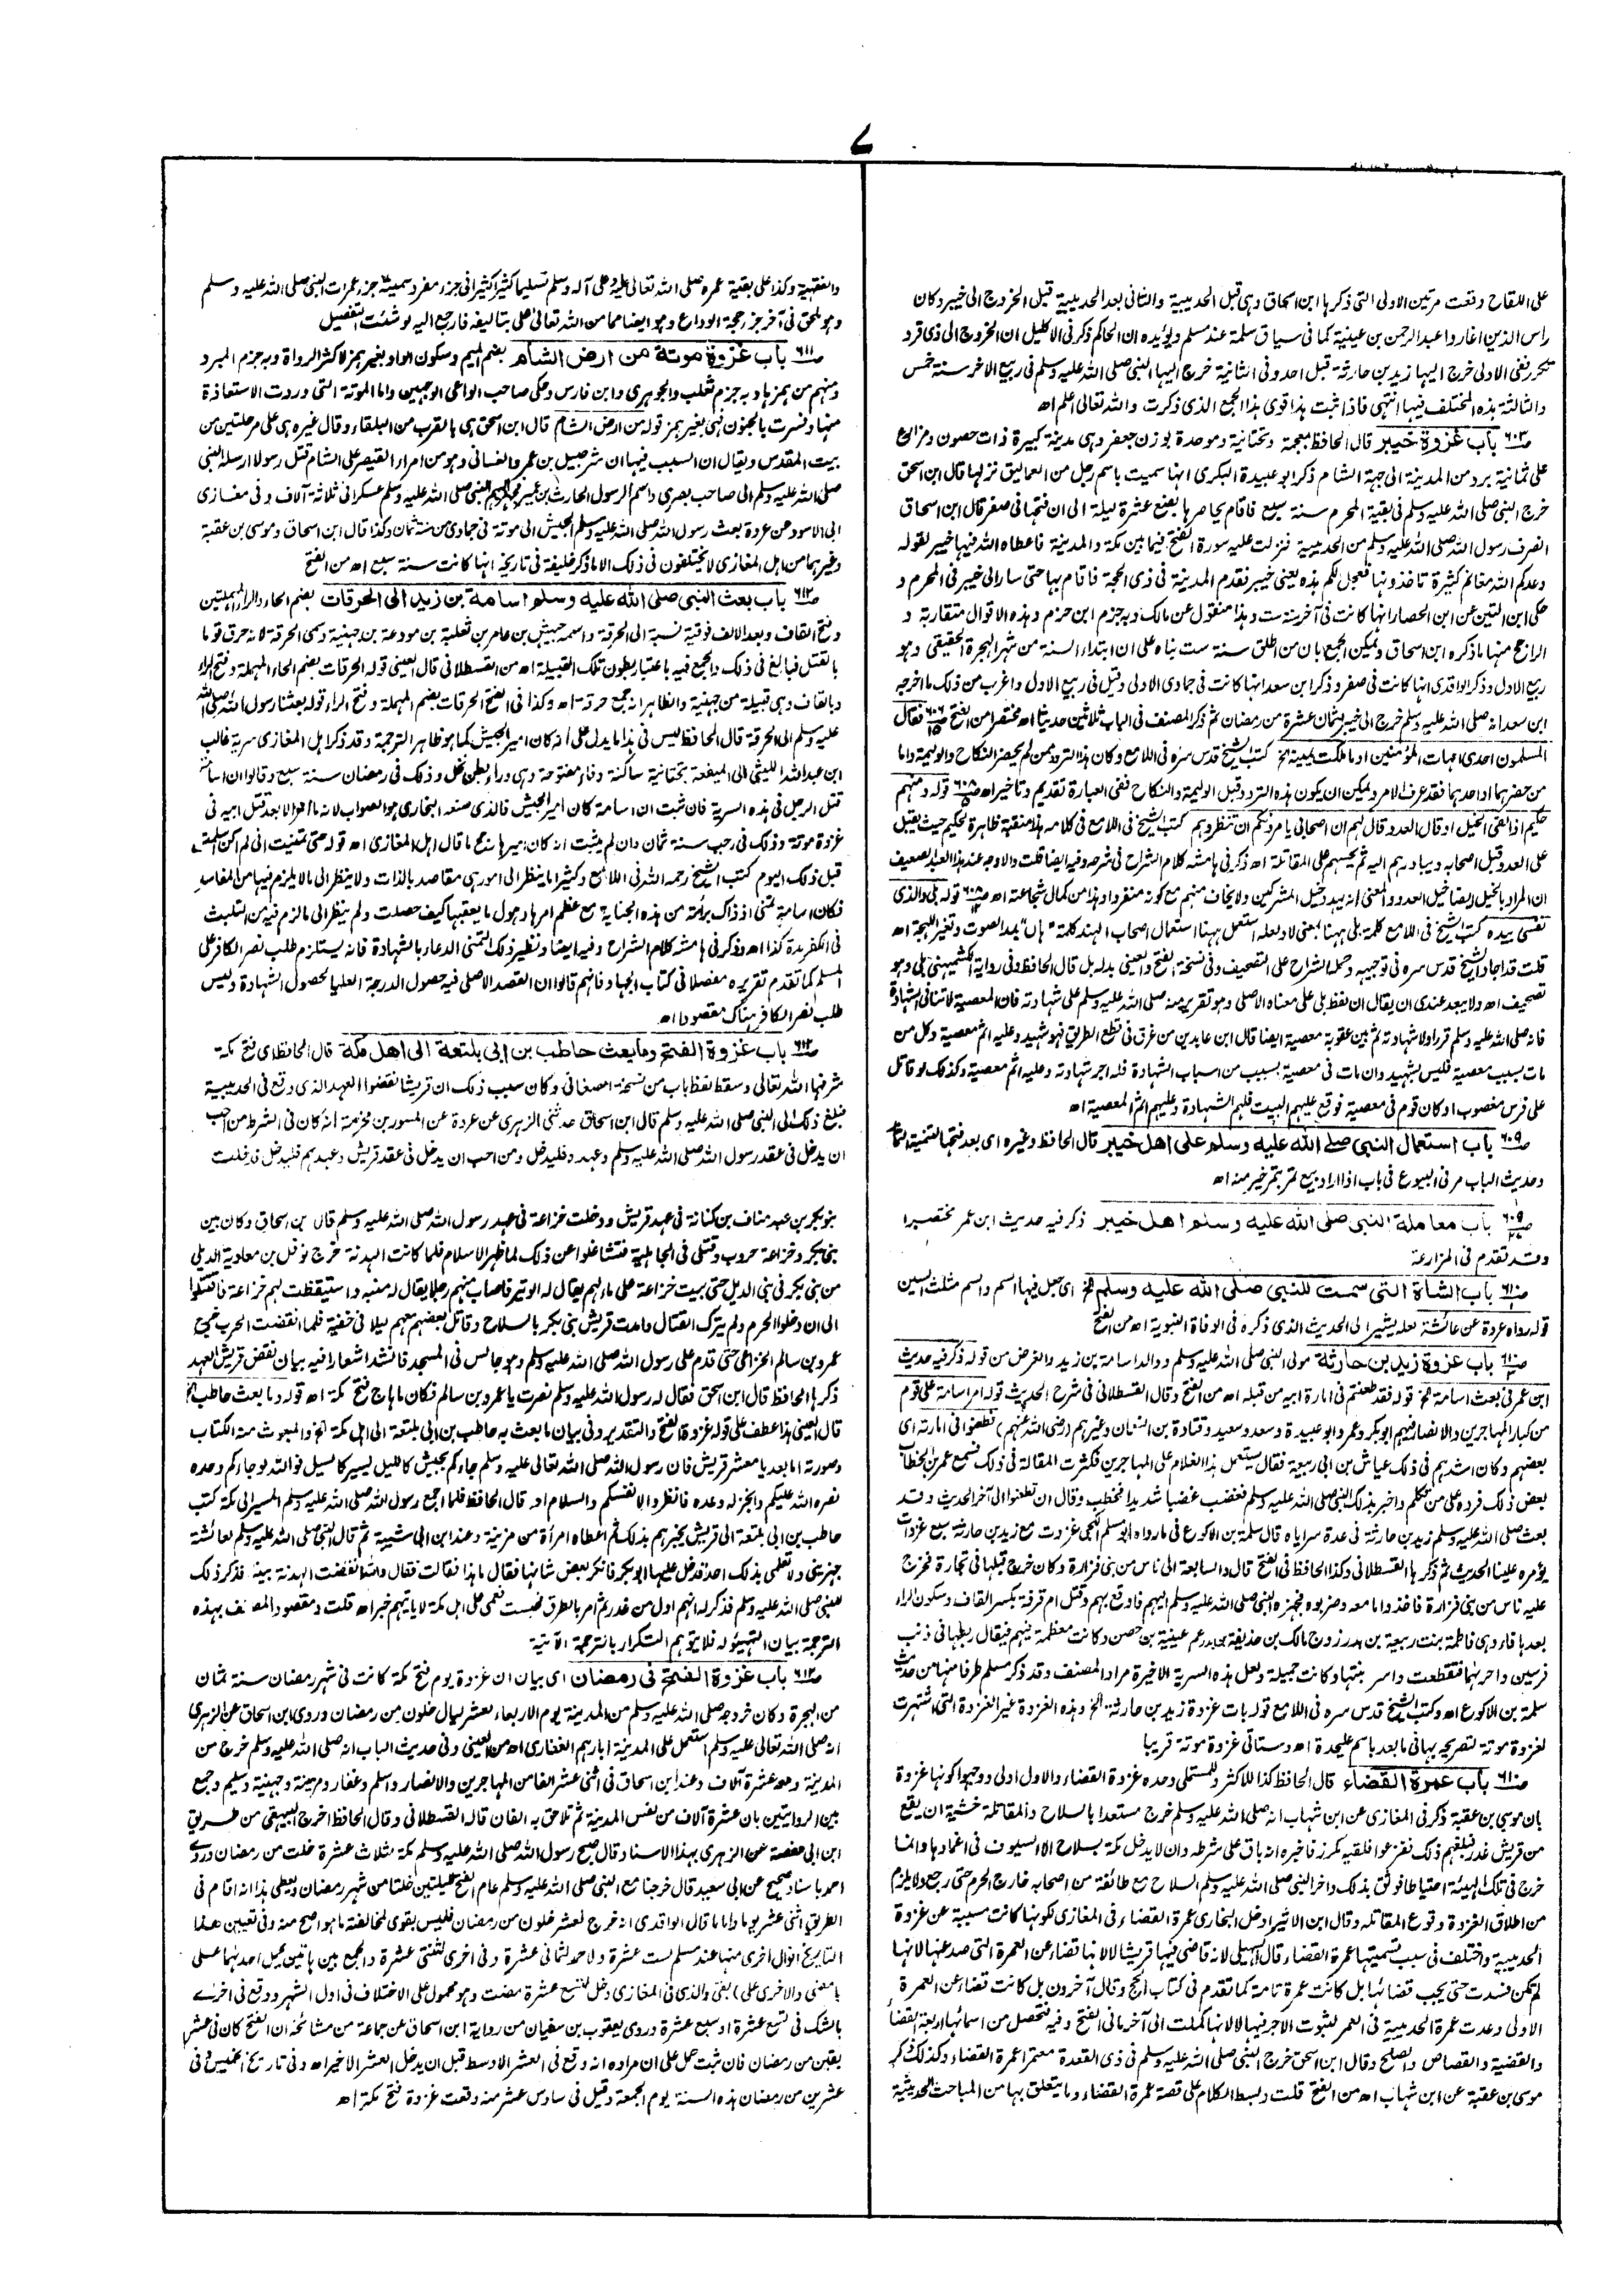 ٧
على اللقاح وقعت مرتين الاولى التى ذكرها ابن اسحاق وهى قبل الحديبية والثانى بعد الحديبية قبل الخروج الى خيبر وكان
راس الذين اغاروا عبد الرحمن بن عيينة كما فى سياق سلمة عند مسلم ويؤيده ان الحاكم ذكر فى الاكليل ان الخروج الى ذى قرد
تكرر ففى الاولى خرج اليها زيد بن حارثة قبل احد وفى الثانية خرج اليها النبى صلى الله عليه وسلم فى ربيع الاخر سنة خمس
والثالثة هذه المختلف فيها انتهى فاذا ثبت هذا قوى هذا الجمع الذى ذكرت والله تعالى اعلم اه
صـ٦٠٣ باب غزوة خيبر قال الحافظ بمعجمة وتحتانية وموحدة بوزن جعفر وهى مدينة كبيرة ذات حصون ومزارع
على ثمانية برد من المدينة الى جهة الشام ذكر ابو عبيدة البكرى انها سميت باسم رجل من العماليق نزلها قال ابن اسحق
خرج النبى صلى الله عليه وسلم فى بقية المحرم سنة سبع فاقام يحاصرها بضع عشرة ليلة الى ان فتحها فى صفر قال ابن اسحاق
انصرف رسول الله صلى الله عليه وسلم من الحديبية فنزلت عليه سورة الفتح فيما بين مكة والمدينة فاعطاه الله فيها خيبر بقوله
وعدكم الله مغانم كثيرة تاخذونها فعجل لكم هذه يعنى خيبر فقدم المدينة فى ذى الحجة فاقام بها حتى سار الى خيبر فى المحرم و
حكى ابن التين عن ابن الحصار انها كانت فى آخر سنة ست وهذا منقول عن مالك وبه جزم ابن حزم وهذه الاقوال متقاربة و
الراجح منها ما ذكره ابن اسحاق ويمكن الجمع بان من اطلق سنة ست بناه على ان ابتداء السنة من شهر الهجرة الحقيقى وهو
ربيع الاول وذكر الواقدى انها كانت فى صفر وذكر ابن سعد انها كانت فى جمادى الاولى وقيل فى ربيع الاول واغرب من ذلك ما اخرجه
ابن سعد انه صلى الله عليه وسلم خرج الى خيبر لثمان عشرة من رمضان ثم ذكر المصنف فى الباب ثلاثين حديثا اه مختصرا من الفتح صـ٦٠٦ فقال
المسلمون احدى امهات المؤمنين او ما ملكت يمينه الخ كتب الشيخ قدس سره فى اللامع وكان هذا التردد ممن لم يحضر النكاح والوليمة واما
من حضرهما او احدهما فقد عرف الامر ويمكن ان يكون هذه التردد قبل الوليمة والنكاح ففى العبارة تقديم وتاخير اه صـ٦٠٨ قوله ومنهم
حكيم اذا لقى الخيل او قال العدو قال لهم ان اصحابى يامرونكم ان تنظروهم كتب الشيخ فى اللامع فى كلامه هذا منقبة ظاهرة لحكيم حيث يقبل
على العدو قبل اصحابه ويبادرهم اليه ثم يحبسهم على المقاتلة اه ذكر فى هامشه كلام الشراح فى شرحه وفيه ايضا قلت والاوجه عند هذا العبد الضعيف
ان المراد بالخيل ايضا خيل العدو والمعنى انه يريد خيل المشركين ولا يخاف منهم مع كونه منفردا وهذا من كمال شجاعته اه صـ٦٠٨ قوله بلى والذى
نفسى بيده كتب الشيخ فى اللامع كلمة بلى ههنا بمعنى لا ولعله استعمل ههنا استعمال اصحاب الهند كلمة "ہاں" بمد الصوت وتغير اللهجة اه
قلت قد اجاد الشيخ قدس سره فى توجيهه وحمله الشراح على التصحيف وفى نسخة الفتح والعينى بدله بل قال الحافظ وفى رواية الكشميهنى بلى وهو
تصحيف اه ولا يبعد عندى ان يقال ان لفظ بلى على معناه الاصلى وهو تقرير منه صلى الله عليه وسلم على شهادته فان المعصية لا تنافى الشهادة
فانه صلى الله عليه وسلم قرر اولا شهادته ثم بين عقوبة معصية ايضا قال ابن عابدين من غرق فى قطع الطريق فهو شهيد وعليه اثم معصية وكل من
مات بسبب معصية فليس بشهيد وان مات فى معصية بسبب من اسباب الشهادة فله اجر شهادته وعليه اثم معصية وكذلك لو قاتل
على فرس مغصوب او كان قوم فى معصية فوقع عليهم البيت فلهم الشهادة وعليهم اثم المعصية اه
صـ٦٠٩ باب استعمال النبى صلى الله عليه وسلم على اهل خيبر قال الحافظ وغيره اى بعد فتحها لتنمية الثمار
وحديث الباب مر فى البيوع فى باب اذا اراد بيع تمر بتمر خير منه اه
صـ٦٠٩ باب معاملة النبى صلى الله عليه وسلم اهل خيبر ذكر فيه حديث ابن عمر مختصرا
وقد تقدم فى المزارعة
صـ٦١٠ باب الشاة التى سمت للنبى صلى الله عليه وسلم الخ اى جعل فيها السم والسم مثلث السين
قوله رواه عروة عن عائشة لعله يشير الى الحديث الذى ذكره فى الوفاة النبوية اه من الفتح
صـ٦١٠ باب غزوة زيد بن حارثة مولى النبى صلى الله عليه وسلم ووالد اسامة بن زيد والغرض من قوله ذكر فيه حديث
ابن عمر فى بعث اسامة الخ قوله فقد طعنتم فى امارة ابيه من قبله اه من الفتح وقال القسطلانى فى شرح الحديث قوله امر اسامة على قوم
من كبار المهاجرين والانصار فيهم ابو بكر وعمر وابو عبيدة وسعد وسعيد وقتادة بن النعمان وغيرهم (رضى الله عنهم) فطعنوا فى امارته اى
بعضهم وكان اشدهم فى ذلك عياش بن ابى ربيعة فقال يستعمل هذا الغلام على المهاجرين فكثرت المقالة فى ذلك فسمع عمر بن الخطاب
بعض ذلك فرده على من تكلم واخبر بذلك النبى صلى الله عليه وسلم فغضب غضبا شديدا فخطب وقال ان تطعنوا الى آخر الحديث وقد
بعث صلى الله عليه وسلم زيد بن حارثة فى عدة سراياه قال سلمة بن الاكوع فى ما رواه ابو مسلم الكجى غزوت مع زيد بن حارثة سبع غزوات
يؤمره علينا الحديث ثم ذكرها القسطلانى وكذا الحافظ فى الفتح قال والسابعة الى ناس من بنى فزارة وكان خرج قبلها فى تجارة فخرج
عليه ناس من بنى فزارة فاخذوا ما معه وضربوه فجهزه النبى صلى الله عليه وسلم اليهم فاوقع بهم وقتل ام قرفة بكسر القاف وسكون الراء
بعدها فاء وهى فاطمة بنت ربيعة بن بدر زوج مالك بن حذيفة بن بدر عم عيينة بن حصن وكانت معظمة فيهم فيقال ربطها فى ذنب
فرسين واجراهما فتقطعت واسر بنتها وكانت جميلة ولعل هذه السرية الاخيرة مراد المصنف وقد ذكر مسلم طرفا منها من حديث
سلمة بن الاكوع اه وكتب الشيخ قدس سره فى اللامع قوله باب غزوة زيد بن حارثة الخ وهذه الغزوة غير الغزوة التى اشتهرت
بغزوة موتة لتصريحه بها فى ما بعد باسم عليحدة اه وستاتى غزوة موتة قريبا
صـ٦١٠ باب عمرة القضاء قال الحافظ كذا للاكثر وللمستملى وحده غزوة القضاء والاول اولى ووجهوا كونها غزوة
بان موسى بن عقبة ذكر فى المغازى عن ابن شهاب انه صلى الله عليه وسلم خرج مستعدا بالسلاح والمقاتلة خشية ان يقع
من قريش غدر فبلغهم ذلك ففزعوا فلقيه مكرز فاخبره انه باق على شرطه وان لا يدخل مكة بسلاح الا السيوف فى اغمادها وانما
خرج فى تلك الهيئة احتياطا فوثق بذلك واخر النبى صلى الله عليه وسلم السلاح مع طائفة من اصحابه خارج الحرم حتى رجع ولا يلزم
من اطلاق الغزوة وقوع المقاتلة وقال ابن الاثير ادخل البخارى عمرة القضاء فى المغازى لكونها كانت مسببة عن غزوة
الحديبية واختلف فى سبب تسميتها عمرة القضاء فقال السهيلى لانه قاضى فيها قريشا لا لانها قضاء عن العمرة التى صد عنها لانها
لم تكن فسدت حتى يجب قضائها بل كانت عمرة تامة كما تقدم فى كتاب الحج وقال آخرون بل كانت قضاء عن العمرة
الاولى وعدت عمرة الحديبية فى العمر لثبوت الاجر فيها لا لانها كملت الى آخر ما فى الفتح وفيه فتحصل من اسمائها اربعة القضاء
والقضية والقصاص والصلح وقال ابن اسحق خرج النبى صلى الله عليه وسلم فى ذى القعدة معتمرا عمرة القضاء وكذلك ذكر
موسى بن عقبة عن ابن شهاب اه من الفتح قلت وبسط الكلام على قصة عمرة القضاء وما يتعلق بها من المباحث الحديثية
والفقهية وكذا على بقية عمره صلى الله تعالى عليه وعلى آله وسلم تسليما كثيرا كثيرا فى جزء مفرد سميته جزء عمرات النبى صلى الله عليه وسلم
وهو ملحق فى آخر جزء حجة الوداع وهو ايضا مما من الله تعالى على بتاليفه فارجع اليه لو شئت التفصيل
صـ٦١١ باب غزوة موتة من ارض الشام بضم الميم وسكون الواو بغير همز لاكثر الرواة وبه جزم المبرد
ومنهم من همزها وبه جزم ثعلب والجوهرى وابن فارس وحكى صاحب الواعى الوجهين واما الموتة التى وردت الاستعاذة
منها وفسرت بالجنون فهى بغير همز قوله من ارض الشام قال ابن اسحق هى بالقرب من البلقاء وقال غيره هى على مرحلتين من
بيت المقدس ويقال ان السبب فيها ان شرحبيل بن عمرو الغسانى وهو من امراء القيصر على الشام قتل رسولا ارسله النبى
صلى الله عليه وسلم الى صاحب بصرى واسم الرسول الحارث بن عمير فجهز اليهم النبى صلى الله عليه وسلم عسكرا فى ثلاثة آلاف وفى مغازى
ابى الاسود عن عروة بعث رسول الله صلى الله عليه وسلم الجيش الى موتة فى جمادى من سنة ثمان وكذا قال ابن اسحاق وموسى بن عقبة
وغيرهما من اهل المغازى لا يختلفون فى ذلك الا ما ذكر خليفة فى تاريخه انها كانت سنة سبع اه من الفتح
صـ٦١٢ باب بعث النبى صلى الله عليه وسلم اسامة بن زيد الى الحرقات بضم الحاء والراء المهملتين
وفتح القاف وبعد الالف فوقية نسبة الى الحرقة واسمه جهيش بن عامر بن ثعلبة بن مودعة بن جهينة وسمى الحرقة لانه حرق قوما
بالقتل فبالغ فى ذلك والجمع فيه باعتبار بطون تلك القبيلة اه من القسطلانى قال العينى قوله الحرقات بضم الحاء المهملة وفتح الراء
وبالقاف وهى قبيلة من جهينة والظاهر انه جمع حرقة اه وكذا فى الفتح الحرقات بضم المهملة وفتح الراء قوله بعثنا رسول الله صلى الله
عليه وسلم الى الحرقة قال الحافظ ليس فى هذا ما يدل على انه كان امير الجيش كما هو ظاهر الترجمة وقد ذكر اهل المغازى سرية غالب
ابن عبد الله الليثى الى الميفعة بتحتانية ساكنة وفاء مفتوحة وهى وراء بطن نخل وذلك فى رمضان سنة سبع وقالوا ان اسامة
قتل الرجل فى هذه السرية فان ثبت ان اسامة كان امير الجيش فالذى صنعه البخارى هو الصواب لانه ما امر الا بعد قتل ابيه فى
غزوة موتة وذلك فى رجب سنة ثمان وان لم يثبت انه كان اميرها رجح ما قال اهل المغازى اه قوله حتى تمنيت انى لم اكن اسلمت
قبل ذلك اليوم كتب الشيخ رحمه الله فى اللامع وكثيرا ما ينظر الى امور هى مقاصد بالذات ولا ينظر الى ما لا يلزم فيها من المفاسد
فكان اسامة تمنى اذ ذاك برائة من هذه الجناية مع عظم امرها وهول ما يعقبها كيف حصلت ولم ينظر الى ما لزم فيه من التلبث
فى الكفر مدة كذا اه وذكر فى هامشه كلام الشراح وفيه ايضا ونظير ذلك التمنى الدعاء بالشهادة فانه يستلزم طلب نصر الكافر على
المسلم كما تقدم تقريره مفصلا فى كتاب الجهاد فانهم قالوا ان القصد الاصلى فيه حصول الدرجة العليا لحصول الشهادة وليس
طلب نصر الكافر هناك مقصودا اه
صـ٦١٢ باب غزوة الفتح وما بعث حاطب بن ابى بلتعة الى اهل مكة قال الحافظ اى فتح مكة
شرفها الله تعالى وسقط لفظ باب من نسخة الصغانى وكان سبب ذلك ان قريشا نقضوا العهد الذى وقع فى الحديبية
فبلغ ذلك الى النبى صلى الله عليه وسلم قال ابن اسحاق حدثنى الزهرى عن عروة عن المسور بن مخرمة انه كان فى الشرط من احب
ان يدخل فى عقد رسول الله صلى الله عليه وسلم وعهده فليدخل ومن احب ان يدخل فى عقد قريش وعهدهم فليدخل فدخلت
بنو بكر بن عبد مناف بن كنانة فى عهد قريش ودخلت خزاعة فى عهد رسول الله صلى الله عليه وسلم قال ابن اسحاق وكان بين
بنى بكر وخزاعة حروب وقتلى فى الجاهلية فتشاغلوا عن ذلك لما ظهر الاسلام فلما كانت الهدنة خرج نوفل بن معاوية الديلى
من بنى بكر فى بنى الديل حتى بيت خزاعة على ماء لهم يقال له الوتير فاصاب منهم رجلا يقال له منبه واستيقظت لهم خزاعة فاقتتلوا
الى ان دخلوا الحرم ولم يترك القتال وامدت قريش بنى بكر بالسلاح وقاتل بعضهم معهم ليلا فى خفية فلما انقضت الحرب خرج
عمرو بن سالم الخزاعى حتى قدم على رسول الله صلى الله عليه وسلم وهو جالس فى المسجد فانشد اشعارا فيه بيان نقض قريش العهد
ذكرها الحافظ قال ابن اسحق فقال له رسول الله عليه وسلم نصرت يا عمرو بن سالم فكان ما هاج فتح مكة اه قوله وما بعث حاطب الخ
قال العينى هذا عطف على قوله غزوة الفتح والتقدير وفى بيان ما بعث به حاطب بن ابى بلتعة الى اهل مكة الخ والمبعوث منه الكتاب
وصورته اما بعد يا معشر قريش فان رسول الله صلى الله تعالى عليه وسلم جاءكم بجيش كالليل يسير كالسيل فوالله لو جاءكم وحده
نصره الله عليكم وانجز له وعده فانظروا لانفسكم والسلام اه قال الحافظ فلما اجمع رسول الله صلى الله عليه وسلم المسير الى مكة كتب
حاطب بن ابى بلتعة الى قريش يخبرهم بذلك ثم اعطاه امرأة من مزينة وعند ابن ابى شيبة ثم قال النبى صلى الله عليه وسلم لعائشة
جهزينى ولا تعلمى بذلك احد فدخل عليها ابو بكر فانكر بعض شانها فقال ما هذا فقالت فقال والله ما انقضت الهدنة بيننا فذكر ذلك
للنبى صلى الله عليه وسلم فذكر له انهم اول من غدر ثم امر بالطرق فحبست فعمى على اهل مكة لا ياتيهم خبر اه قلت ومقصود المصنف بهذه
الترجمة بيان التهيؤ له فلا يتوهم التكرار بالترجمة الآتية
صـ٦١٢ باب غزوة الفتح فى رمضان اى بيان ان غزوة يوم فتح مكة كانت فى شهر رمضان سنة ثمان
من الهجرة وكان خروجه صلى الله عليه وسلم من المدينة يوم الاربعاء لعشر ليال خلون من رمضان وروى ابن اسحاق عن الزهرى
انه صلى الله تعالى عليه وسلم استعمل على المدينة ابا رهم الغفارى اه من العينى وفى حديث الباب انه صلى الله عليه وسلم خرج من
المدينة ومعه عشرة آلاف وعند ابن اسحاق فى اثنى عشر الفا من المهاجرين والانصار واسلم وغفار ومزينة وجهينة وسليم وجمع
بين الروايتين بان عشرة آلاف من نفس المدينة ثم تلاحق به الفان قاله القسطلانى وقال الحافظ اخرج البيهقى من طريق
ابن ابى حفصة عن الزهرى بهذا الاسناد وقال صبح رسول الله صلى الله عليه وسلم مكة لثلاث عشرة خلت من رمضان وروى
احمد باسناد صحيح عن ابى سعيد قال خرجنا مع النبى صلى الله عليه وسلم عام الفتح لليلتين خلتا من شهر رمضان ويعطى هذا انه اقام فى
الطريق اثنى عشر يوما واما ما قال الواقدى انه خرج لعشر خلون من رمضان فليس بقوى لمخالفته ما هو اصح منه وفى تعيين هذا
التاريخ اقوال اخرى منها عند مسلم لست عشرة ولاحمد لثمانى عشرة وفى اخرى لثنتى عشرة والجمع بين هاتين بحمل احدهما على
ما مضى والاخرى على ما بقى والذى فى المغازى دخل لتسع عشرة مضت وهو محمول على الاختلاف فى اول الشهر ووقع فى اخرى
بالشك فى تسع عشرة او سبع عشرة وروى يعقوب بن سفيان من رواية ابن اسحاق عن جماعة من مشائخه ان الفتح كان فى عشر
بقين من رمضان فان ثبت حمل على ان مراده انه وقع فى العشر الاوسط قبل ان يدخل العشر الاخير اه وفى تاريخ الخميس وفى
عشرين من رمضان هذه السنة يوم الجمعة وقيل فى سادس عشر منه وقعت غزوة فتح مكة اه